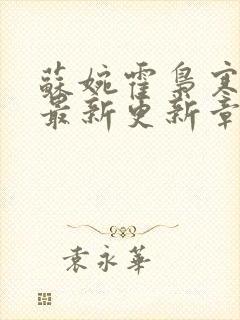 蘇婉霍梟寒
最新更新章
袁永華